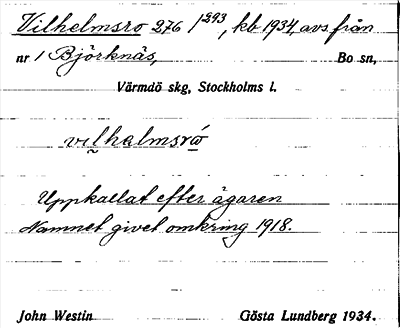 Vilhelmsro 276 1/293, kb 1934, avs från
nr 1 Björknäs, Bo sn,
Värmdö skg, Stockholms l.
vilhalmsrώ
Uppkallat efter ägaren
Namnet givet omkring 1918.
John Westin Gösta Lundberg 1934.